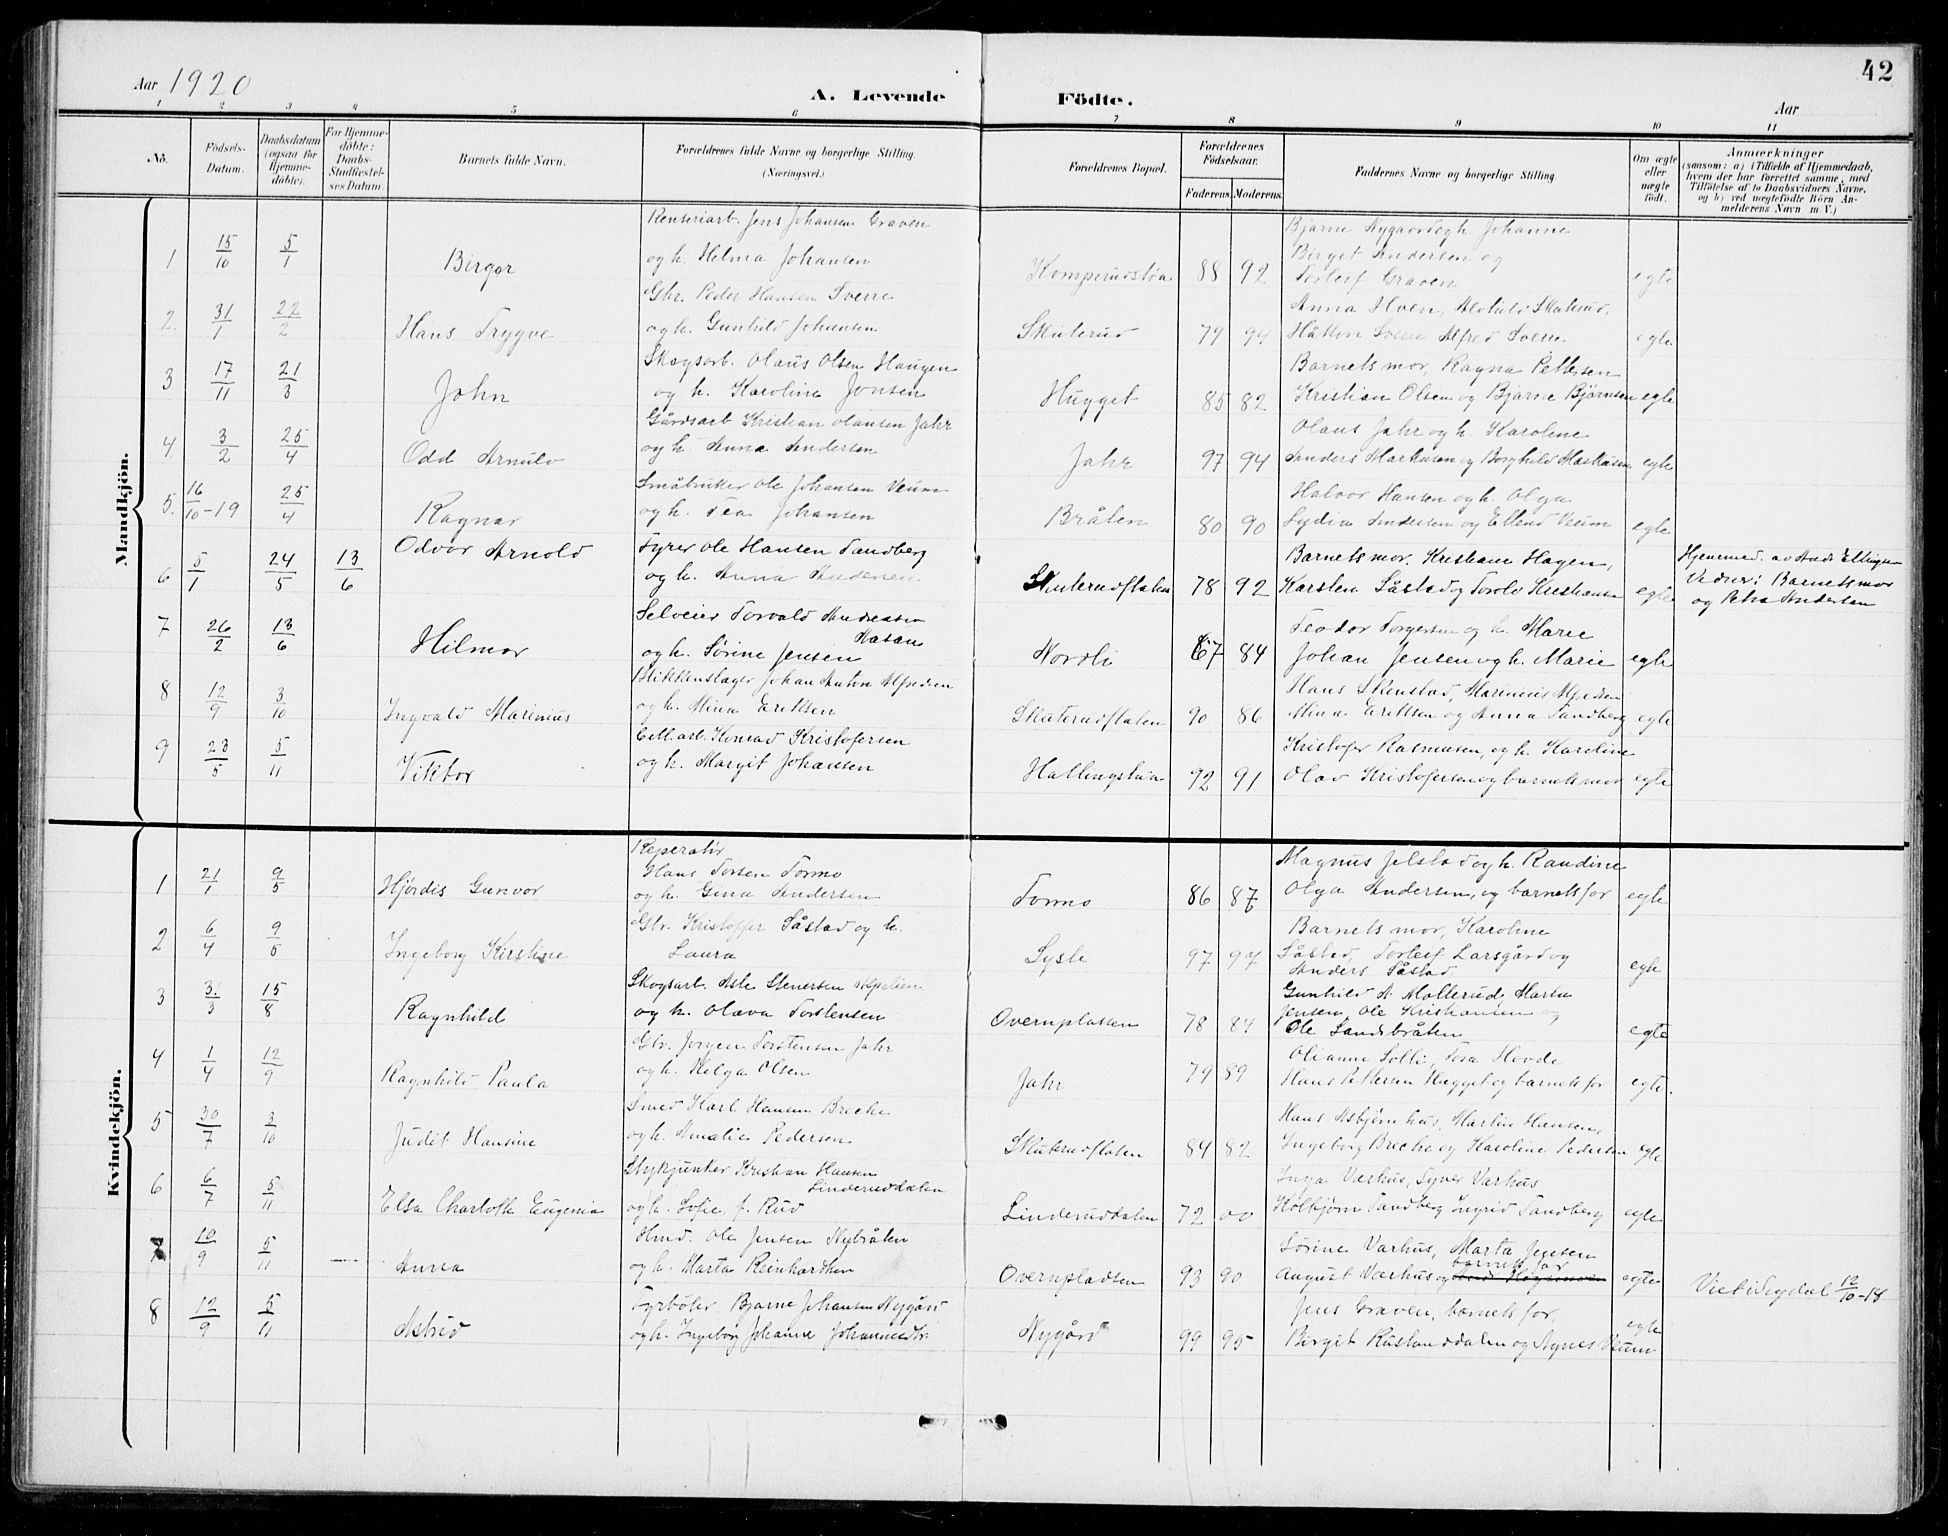 Aar 1920
A. Levende Födte.
Aar
42
1 2 3 4 5 6 7 8 9 10 11
No.
Födsels-Datum.
Daabsdatum (ogsaa for Hjemme-döbte).
For Hjemme-döbte: Daabs-Stadfæstel-ses Datum.
Barnets fulde Navn.
Forældrenes fulde Navne og borgerlige Stilling (Næringsvei.)
Forældrenes Bopæl.
Forældrenes Födselsaar.
Faderens. Moderens.
Faddernes Navne og borgerlige Stilling.
Om ægte eller uægte födt.
Anmærkninger
(saasom: a) i Tilfælde af Hjemmedaab, hvem der har forrettet samme, med Tilföielse af to Daabsvidners Navne, og b) ved uægtefödte Börn An-melderens Navn m. V.)
Mandkjön.
Renseriarb. Jens Johansen Graven
Bjarne Nygaard og h. Johanne
1 15/10 5/1 Birger og h. Helma Johansen Komperudstøa 88 92 Birgit Andersen og
Torleif Graven egte
Gbr. Peder Hansen Sverre
Anna Hven, Alvhild Skuterud,
2. 31/1 22/2 Hans Trygve og h. Gunhild Johansen Skuterud 79 94 Håkon Sverre Alfred Sverre egte
Skogsarb. Olaus Olsen Haugen
Barnets mor, Ragna Pettersen
3 17/11 21/3 John og h. Karoline Jonsen Hugget 85 82 Kristian Olsen og Bjarne Bjørnsen egte
Gårdsarb Kristian Olausen Jahr
Olaus Jahr og h. Karoline
4. 3/2 25/4 Odd Arnulv og h. Anna Andersen Jahr 97 94 Anders Markusen og Borghild Markusen egte
Småbruker Ole Johansen Veum
Halvor Hansen og h. Olga
5. 16/10-19 25/4 Ragnar og h. Tea Johansen Bråten 80 90 Lydia Andersen og Ellend Veum egte
Odvar Arnold Fyrer Ole Hansen Sandberg
Barnets mor, Kristiane Hagen,
Hjemmed. av Ellingsen
6 5/1 24/5 13/6 og h. Anna Andersen. Skuterudflaten 78 92 Karsten Såstad og Torolv Kristiansen egte Vidner: Barnets mor
og Petra Andersen
Selveier Torvald Andreassen
Teodor Torgersen og h. Marie
7 26/2 13/6 Hilmar og h. Sørine Jensen Nordli 67 84 Johan Jensen og h. Marie egte
Blikkenslager Johan Anton Alfredsen
Hans Skinstad, Marinius Alfredsen
8 12/9 3/10 Ingvald Marinius og h. Mina Eriksen Skuterudflaten 90 86 Mina Eriksen og Anna Sandberg egte
Cell.arb. Konrad Kristofersen
Kristofer Rasmussen, og h. Karoline
9 23/5 5/11 Viktor og h. Margit Johansen Hallingstøa 92 91 Olav Kristofersen og barnets mor egte
Kvindekjön.
Reperatør
Hans Torsen Tormo
Magnus Jelstad og h. Randine
1 21/1 9/5 Hjördis Gunvor og h. Gina Andersen Tormo 86 87 Olga Andersen, og barnets far egte
Gbr. Kristoffer Såstad og h.
Barnets mor, Karoline
2 6/4 9/5 Ingeborg Kirstine Laura Sysle 97 97 Såstad, Torleif Larsgård og
Anders Såstad egte
Skogsarb. Asle Stenersen
Gunhild A. Møllerud, Marta
3 3/3 15/8 Ragnhild og h. Olava Torstensen Overnplassen 78 84 Jensen, Ole Kristiansen og
Ole Sandsbråten egte
Gbr. Jorgen Torstensen Jahr
Olianne Solli, Tora Hovde
4 1/4 12/9 Ragnhild Paula og h. Helga Olsen Jahr 79 89 Hans Pettersen Hugget og barnets far egte.
Smed Karl Hansen Brecke
Hans Asbjørnhus, Martin Hansen,
5 30/7 3/10 Judit Hansine og h. Amalie Pedersen Skuterudflaten 84 82 Ingeborg Brecke og Karoline Pedersen egte
Stykjunker Kristian Hansen
Linderuddalen
Inga Værhus, Syver Værhus
6 6/7 5/11 Elsa Charlotte Eugenia og h. Sofie f. Rud Linderuddalen 72 00 Kolbjørn Sandberg Ingrid Sandberg egte
Hmd. Ole Jensen Nybråten
Sørine Værhus, Marta Jensen
barnets far
7 10/9 5/11 Anna og h. Marta Reinhardtsen Overnpladsen 93 90 August Værhus og egte Viet i Sigdal 12/10-18
Fyrbøter Bjarne Johansen Nygård
Jens Graven, barnets far,
8 12/9 5/11 Astrid og h. Ingeborg Johanne Johannesdtr. Nygård 99 95 Birgit Rustanddalen og Agnes Veum egte